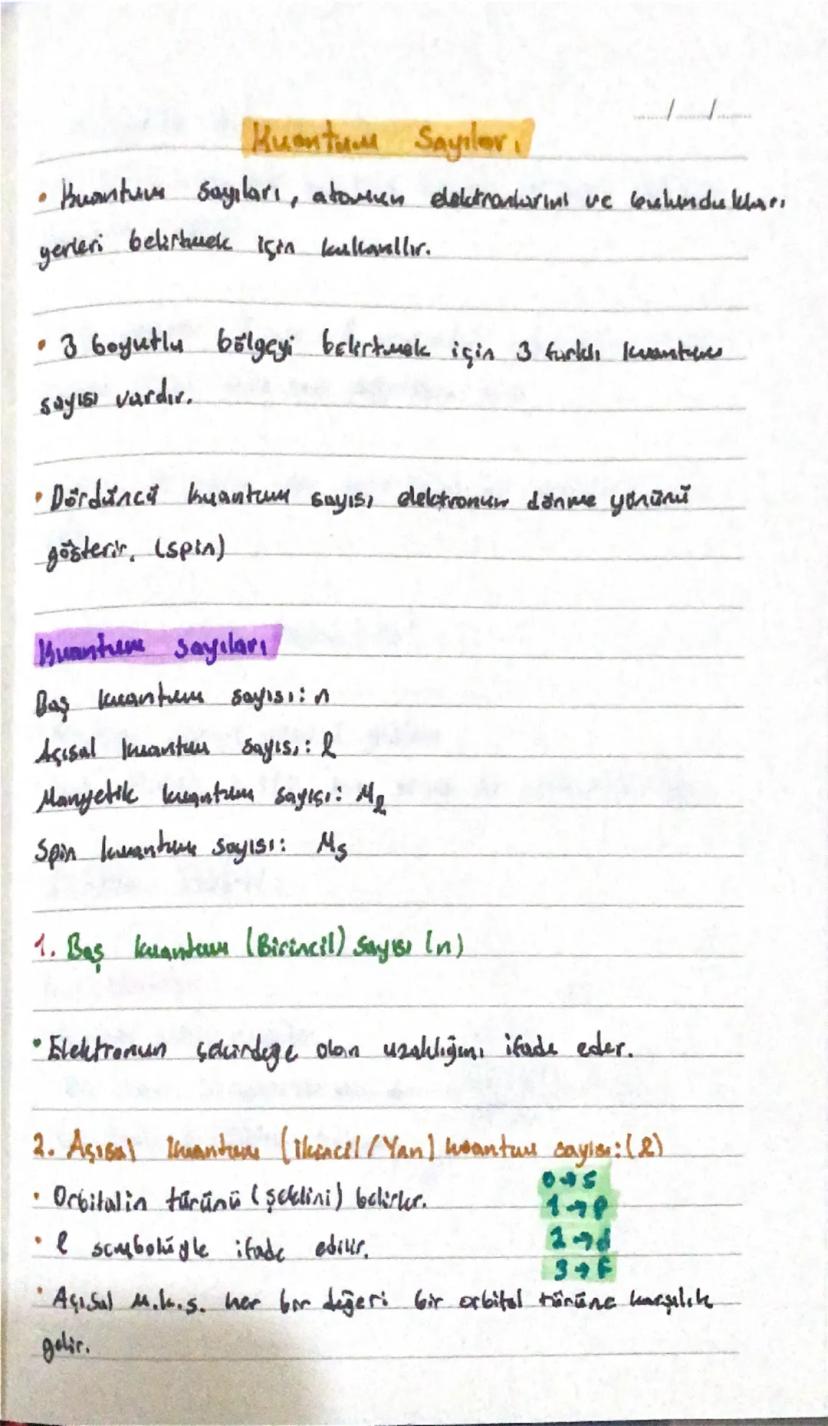 Kuantum Sayıları
• Kuantum sayıları, atomun elektronlarını ve bulundukları
yerleri belirtmek için kullanılır.
• 3 boyutlu bölgeyi belirtmek için 3 farklı kuantum
sayısı vardır.
• Dördüncü kuantum sayısı elektronun dönme yönünü
gösterir. (spin)
Kuantum sayıları
Baş kuantum sayısı: n
Açısal kuantum sayısı: l
Manyetik kuantum sayısı: Ml
Spin kuantum sayısı: Ms
1. Baş kuantum (Birincil) sayısı (n)
• Elektronun çekirdeğe olan uzaklığını ifade eder.
2. Açısal kuantum (ikincil/Yan) kuantum sayısı: (l)
0→s
• Orbitalin türünü (şeklini) belirler.
1→p
• l sembolüyle ifade edilir.
2→d
3→f
• Açısal m.k.s. her bir değeri bir orbital türüne karşılık
gelir.